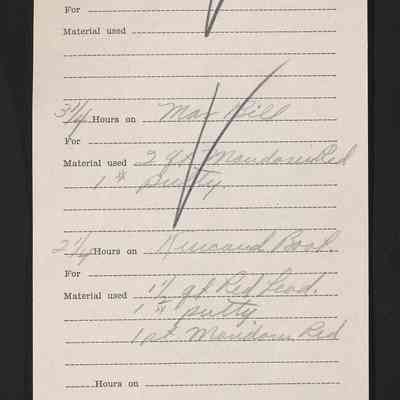 For
Material used
3 1/4 Hours on
For
Material used 2 qts. Mandarin Red
1 # putty.
2 1/4 Hours on Kincaid Boat.
For
Material used 1 1/2 qt Red Lead.
1 # putty
1 pt. Mandarin Red
Hours on